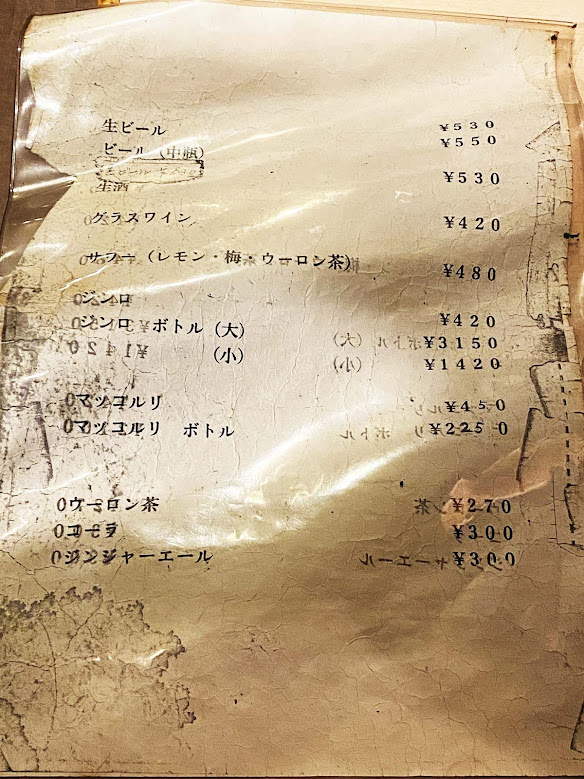 生ビール ¥530
ビール (中瓶) ¥550
生酒 ¥530
グラスワイン ¥420
サワー (レモン・梅・ウーロン茶) ¥480
ジンロ ¥420
ジンロ ボトル (大) ¥3150
(小) ¥1420
マッコルリ ¥450
マッコルリ ボトル ¥2250
ウーロン茶 ¥270
コーラ ¥300
ジンジャーエール ¥300